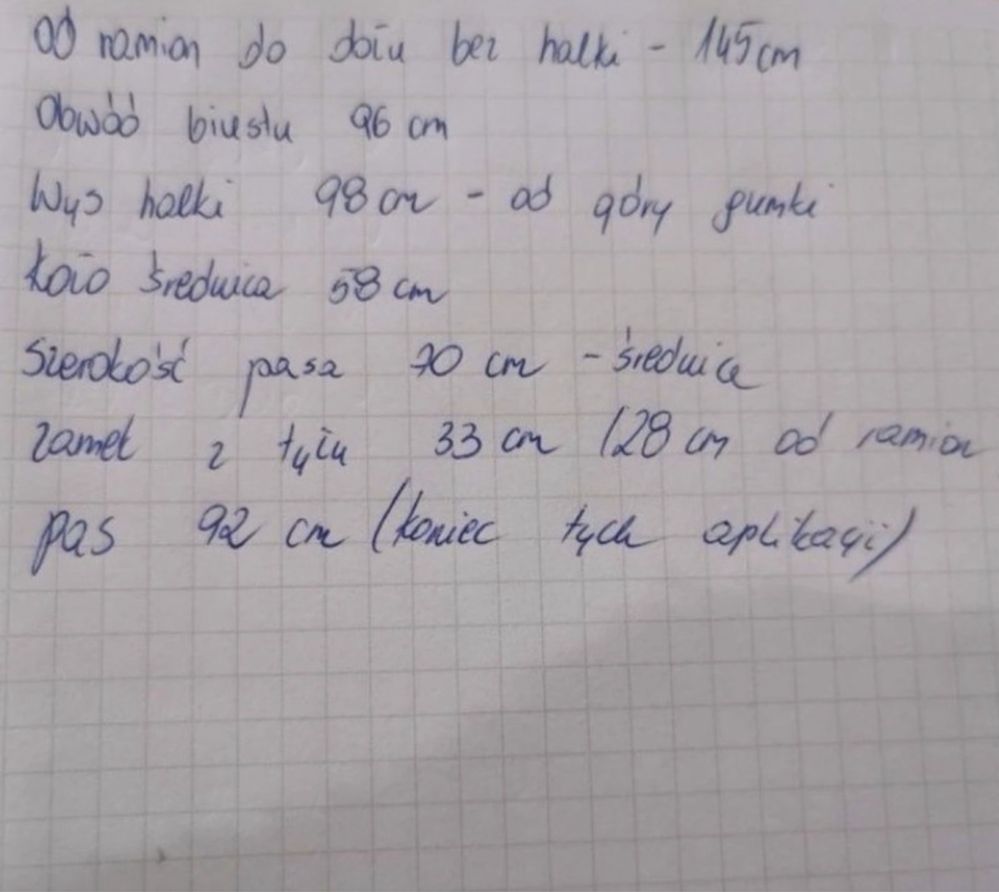 Od ramion do dołu bez halki - 145 cm
Obwód biustu 96 cm
Wys halki 98 cm - od góry gumki
koło średnica 58 cm
Szerokość pasa 70 cm - średnica
zamek z tyłu 33 cm /28 cm od ramion
pas 92 cm (koniec tych aplikacji)